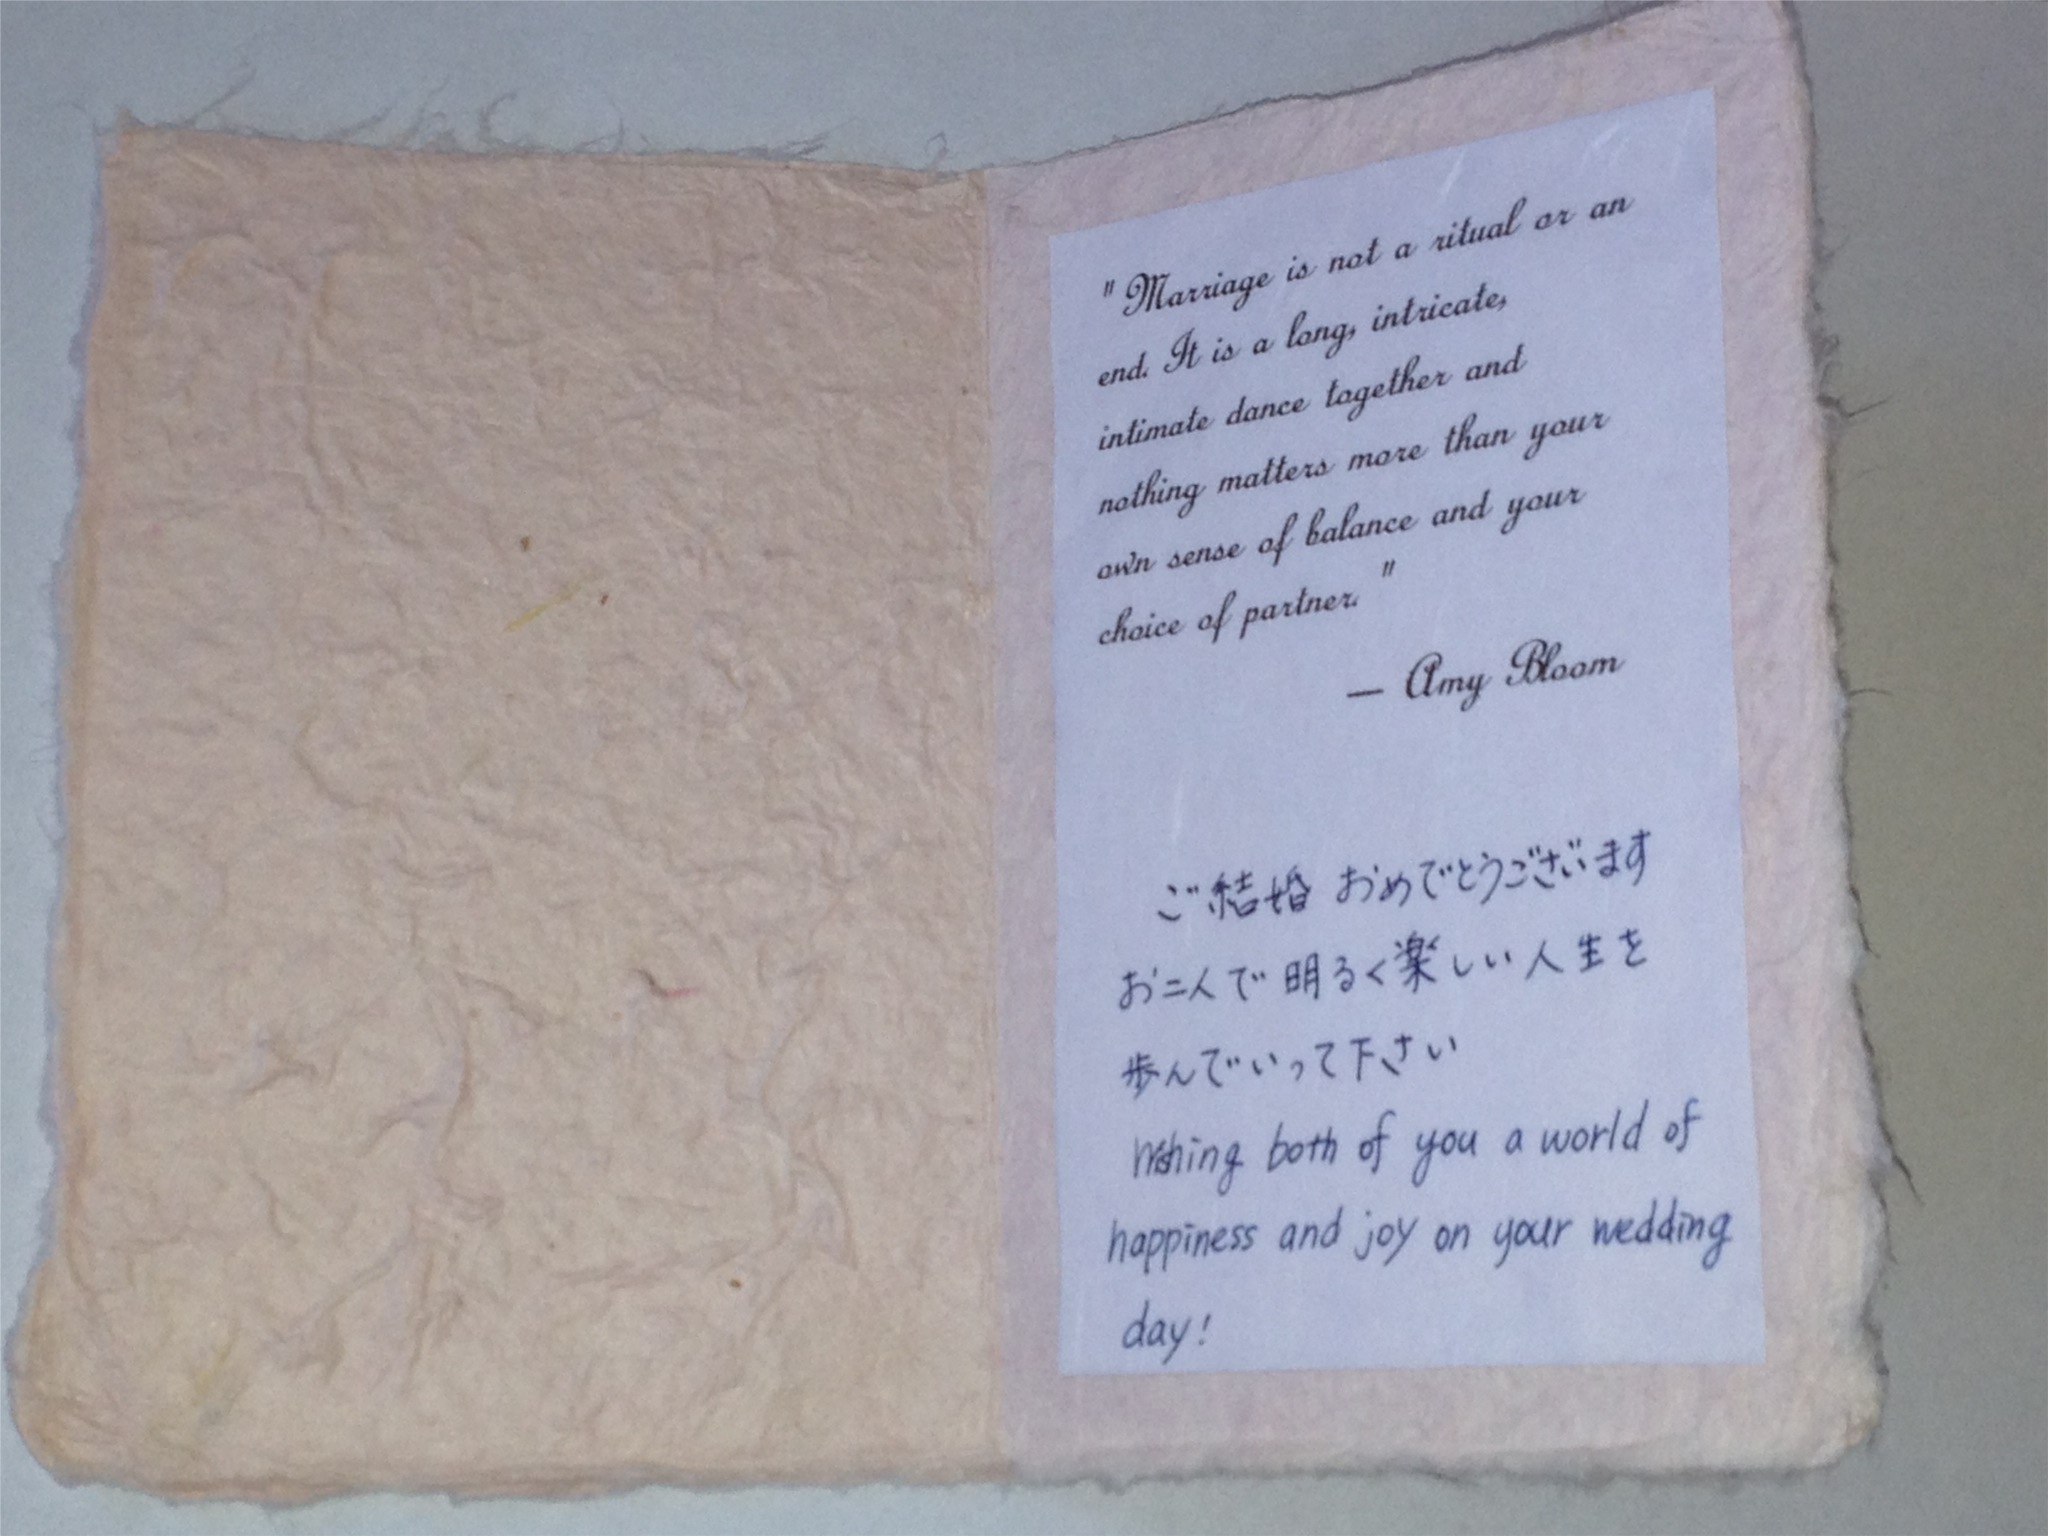 " Marriage is not a ritual or an
end. It is a long, intricate,
intimate dance together and
nothing matters more than your
own sense of balance and your
choice of partner. "
— Amy Bloom
ご結婚 おめでとうございます
お二人で明るく楽しい人生を
歩んでいって下さい
Wishing both of you a world of
happiness and joy on your wedding
day!